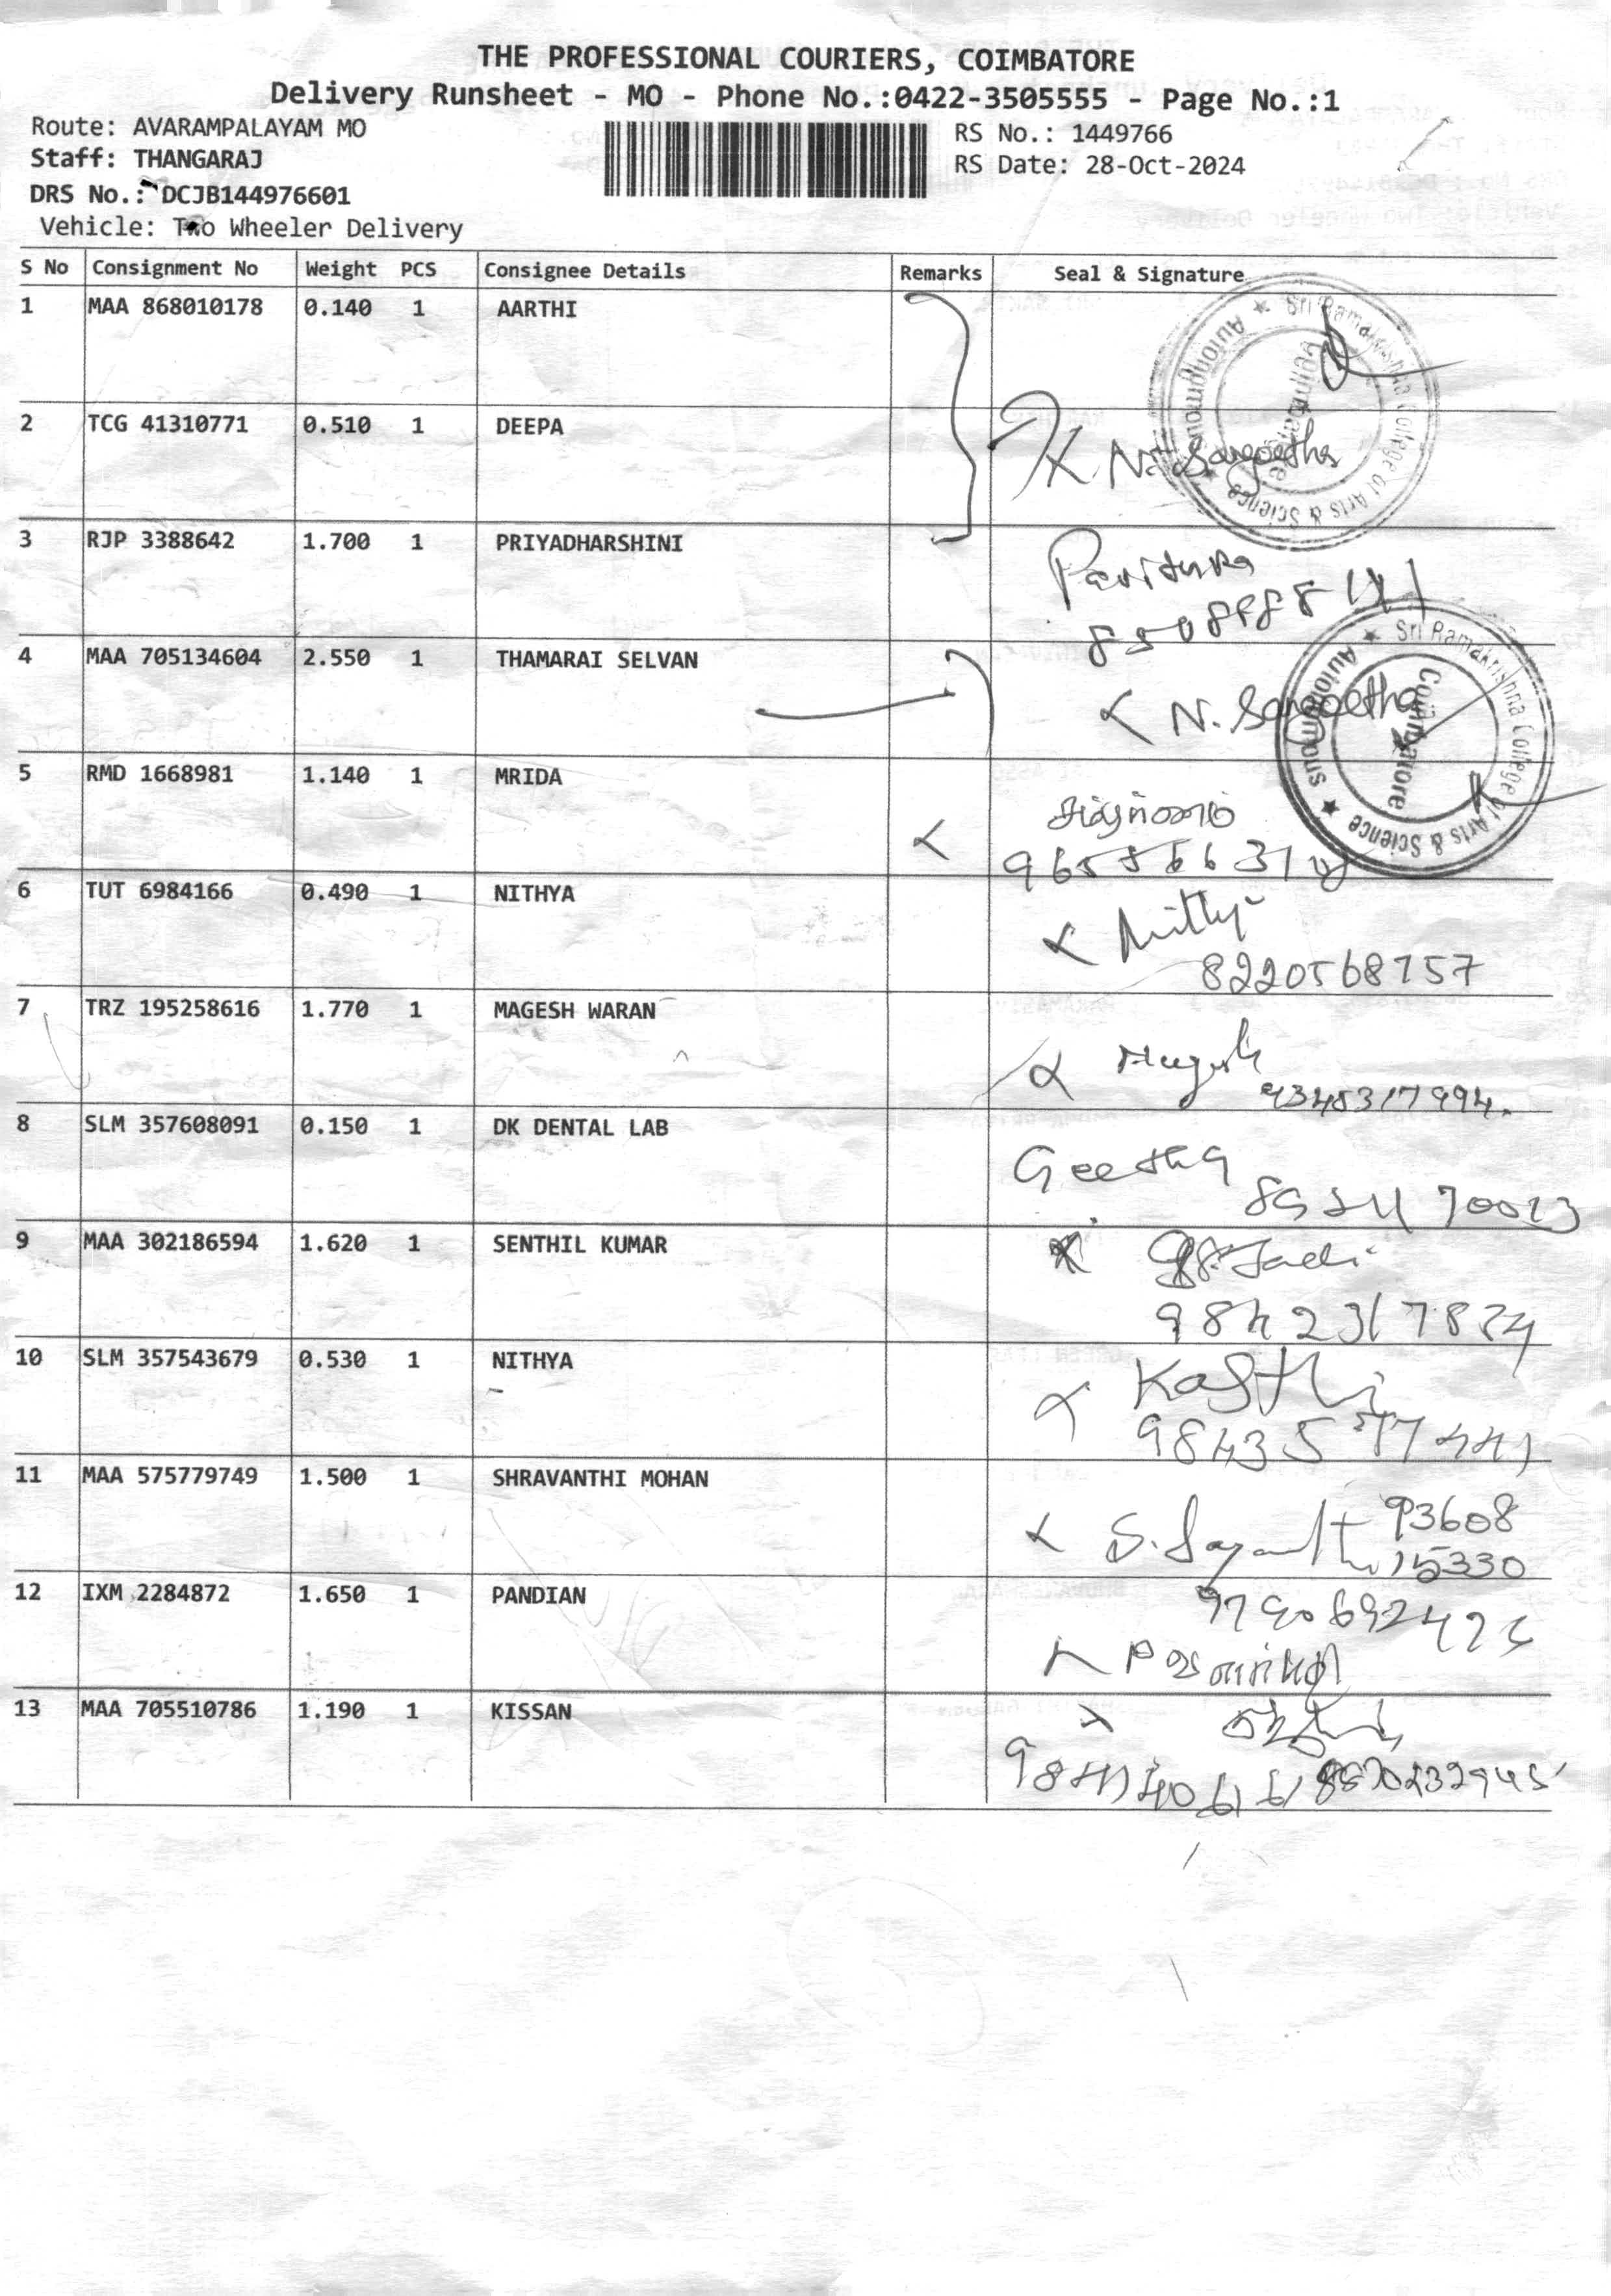 THE PROFESSIONAL COURIERS, COIMBATORE
Delivery Runsheet - MO - Phone No.:0422-3505555 - Page No.:1
Route: AVARAMPALAYAM MO
RS No.: 1449766
Staff: THANGARAJ
RS Date: 28-Oct-2024
DRS No.: DCJB144976601
Vehicle: Two Wheeler Delivery
S No Consignment No Weight PCS Consignee Details Remarks Seal & Signature
1 MAA 868010178 0.140 1 AARTHI
Sri Ramakrishna College of Arts & Science ★ Autonomous ★
Coimbatore
2 TCG 41310771 0.510 1 DEEPA
N. Sangeetha
3 RJP 3388642 1.700 1 PRIYADHARSHINI
4 MAA 705134604 2.550 1 THAMARAI SELVAN
N. Sangeetha
Sri Ramakrishna College of Arts & Science ★ Autonomous ★
Coimbatore
5 RMD 1668981 1.140 1 MRIDA
6 TUT 6984166 0.490 1 NITHYA
8220568757
7 TRZ 195258616 1.770 1 MAGESH WARAN
9345317994.
8 SLM 357608091 0.150 1 DK DENTAL LAB
Geetha
9 MAA 302186594 1.620 1 SENTHIL KUMAR
10 SLM 357543679 0.530 1 NITHYA
11 MAA 575779749 1.500 1 SHRAVANTHI MOHAN
93608
15330
12 IXM 2284872 1.650 1 PANDIAN
13 MAA 705510786 1.190 1 KISSAN